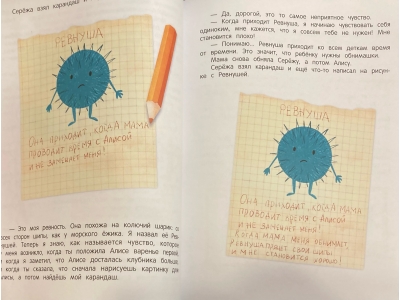 Серёжа взял карандаш и
РЕВНУША
Она приходит, когда мама
проводит время с Алисой
и не замечает меня!
— Это моя ревность. Она похожа на колючий шарик, с
всех сторон шипы, как у морского ёжика. Я назвал её Рев-
нушей. Теперь я знаю, как называется чувство, которое
меня возникло, когда ты положила Алисе варенье первой,
когда я заметил, что Алисе досталось клубники больше,
когда ты сказала, что сначала нарисуешь картинку для
лисы, а потом найдёшь мой карандаш.
— Да, дорогой, это то самое неприятное чувство.
— Когда приходит Ревнуша, я начинаю чувствовать себя
одиноким, мне кажется, что я совсем тебе не нужен! Мне
становится плохо!
— Понимаю... Ревнуша приходит ко всем деткам время
от времени. Это значит, что ребёнку нужны обнимашки.
Мама снова обняла Серёжу, а потом Алису.
Серёжа взял карандаш и ещё что-то написал на рисун-
ке с Ревнушей.
РЕВНУША
Она приходит, когда мама
проводит время с Алисой
и не замечает меня!
Когда мама меня обнимает,
Ревнуша прячет свои шипы,
и мне становится хорошо!